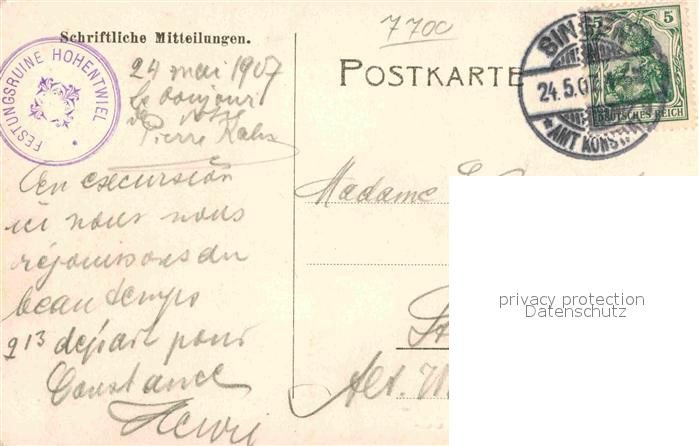 7700
Schriftliche Mitteilungen.
FESTUNGSRUINE HOHENTWIEL
24 mai 1907
Le bonjour
de votre
Pierre Kahn
POSTKARTE
SIN
24.5.07
*AMT KONST
5 5
DEUTSCHES REICH
En excursion
ici nous nous
réjouissons du
beau temps
2 13 départ pour
Constance
Henri
Madame
St
Alt. W
privacy protection
Datenschutz